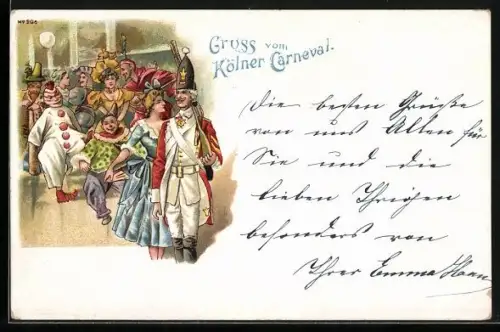 No 206
Gruss vom
Kölner Carneval.
Die besten Grüße
von uns Allen für
Sie und die
lieben Ihrigen
besonders von
Ihrer Emma Haan